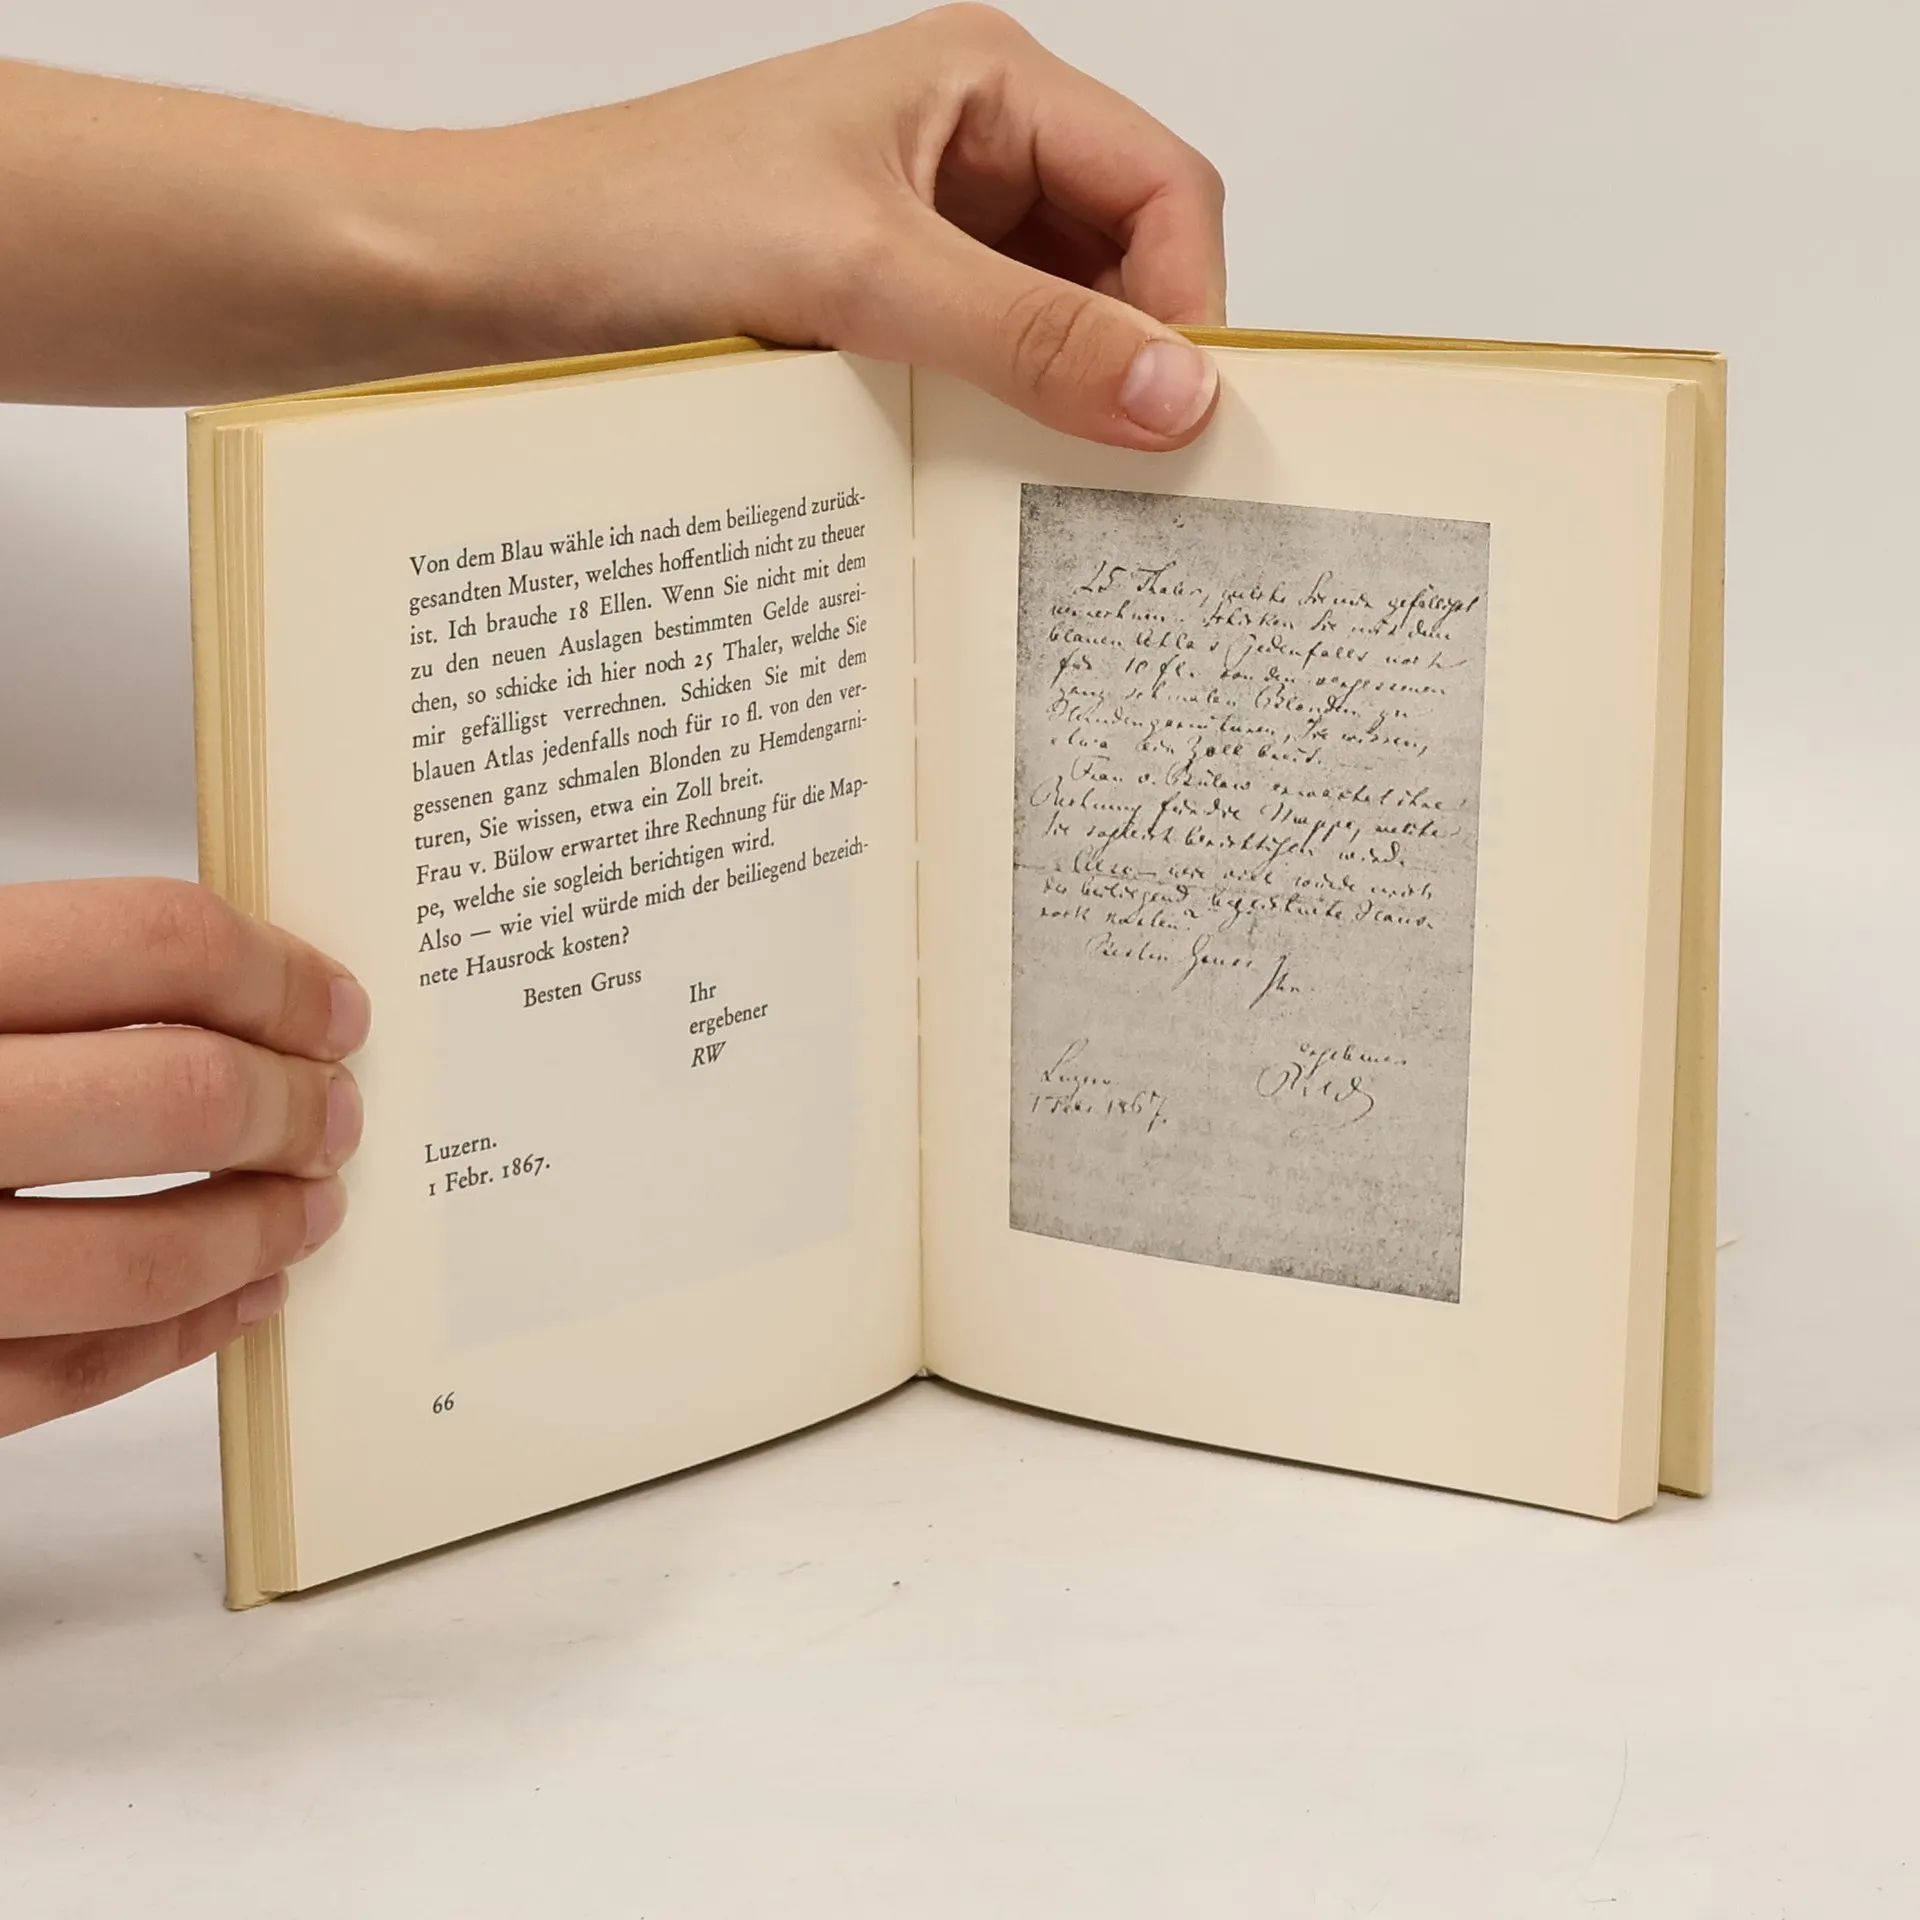 Von dem Blau wähle ich nach dem beiliegend zurück-
gesandten Muster, welches hoffentlich nicht zu theuer
ist. Ich brauche 18 Ellen. Wenn Sie nicht mit dem
zu den neuen Auslagen bestimmten Gelde ausrei-
chen, so schicke ich hier noch 25 Thaler, welche Sie
mir gefälligst verrechnen. Schicken Sie mit dem
blauen Atlas jedenfalls noch für 10 fl. von den ver-
gessenen ganz schmalen Blonden zu Hemdengarni-
turen, Sie wissen, etwa ein Zoll breit.
Frau v. Bülow erwartet ihre Rechnung für die Map-
pe, welche sie sogleich berichtigen wird.
Also — wie viel würde mich der beiliegend bezeich-
nete Hausrock kosten?
Besten Gruss
Ihr
ergebener
RW
Luzern.
1 Febr. 1867.
66
25 Thaler, welche Sie mir gefälligst
verrechnen. Schicken Sie mit dem
blauen Atlas jedenfalls noch
für 10 fl. von den vergessenen
ganz schmalen Blonden zu
Hemdengarnituren, Sie wissen,
etwa ein Zoll breit.
Frau v. Bülow erwartet ihre
Rechnung für die Mappe, welche
sie sogleich berichtigen wird.
Also — wie viel würde mich
der beiliegend bezeichnete Haus-
rock kosten?
Besten Gruss
Ihr
ergebener
Luzern.
1 Febr. 1867.